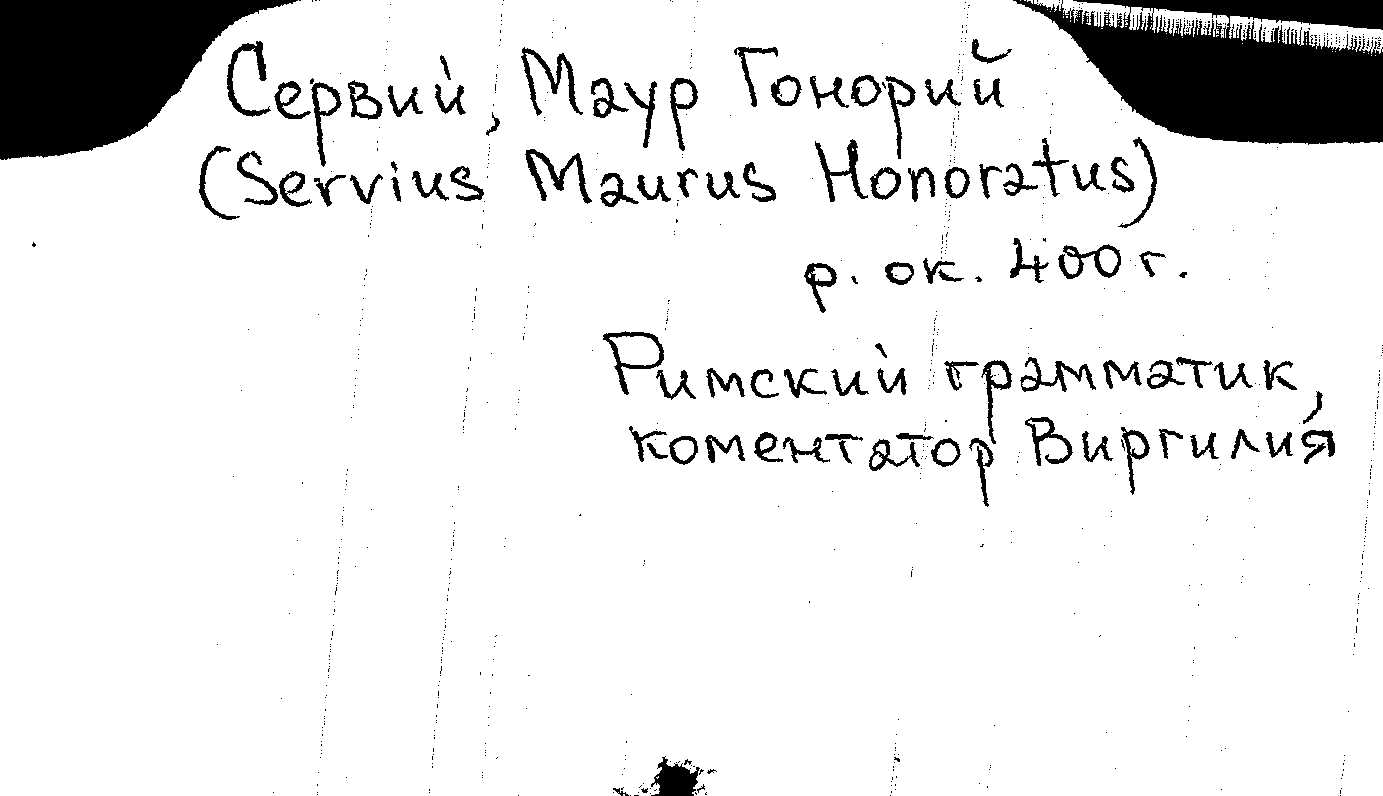 Сервий, Маур Гонорий
(Servius Maurus Honoratus)
р. ок. 400 г.
Римский грамматик,
коментатор Виргилия